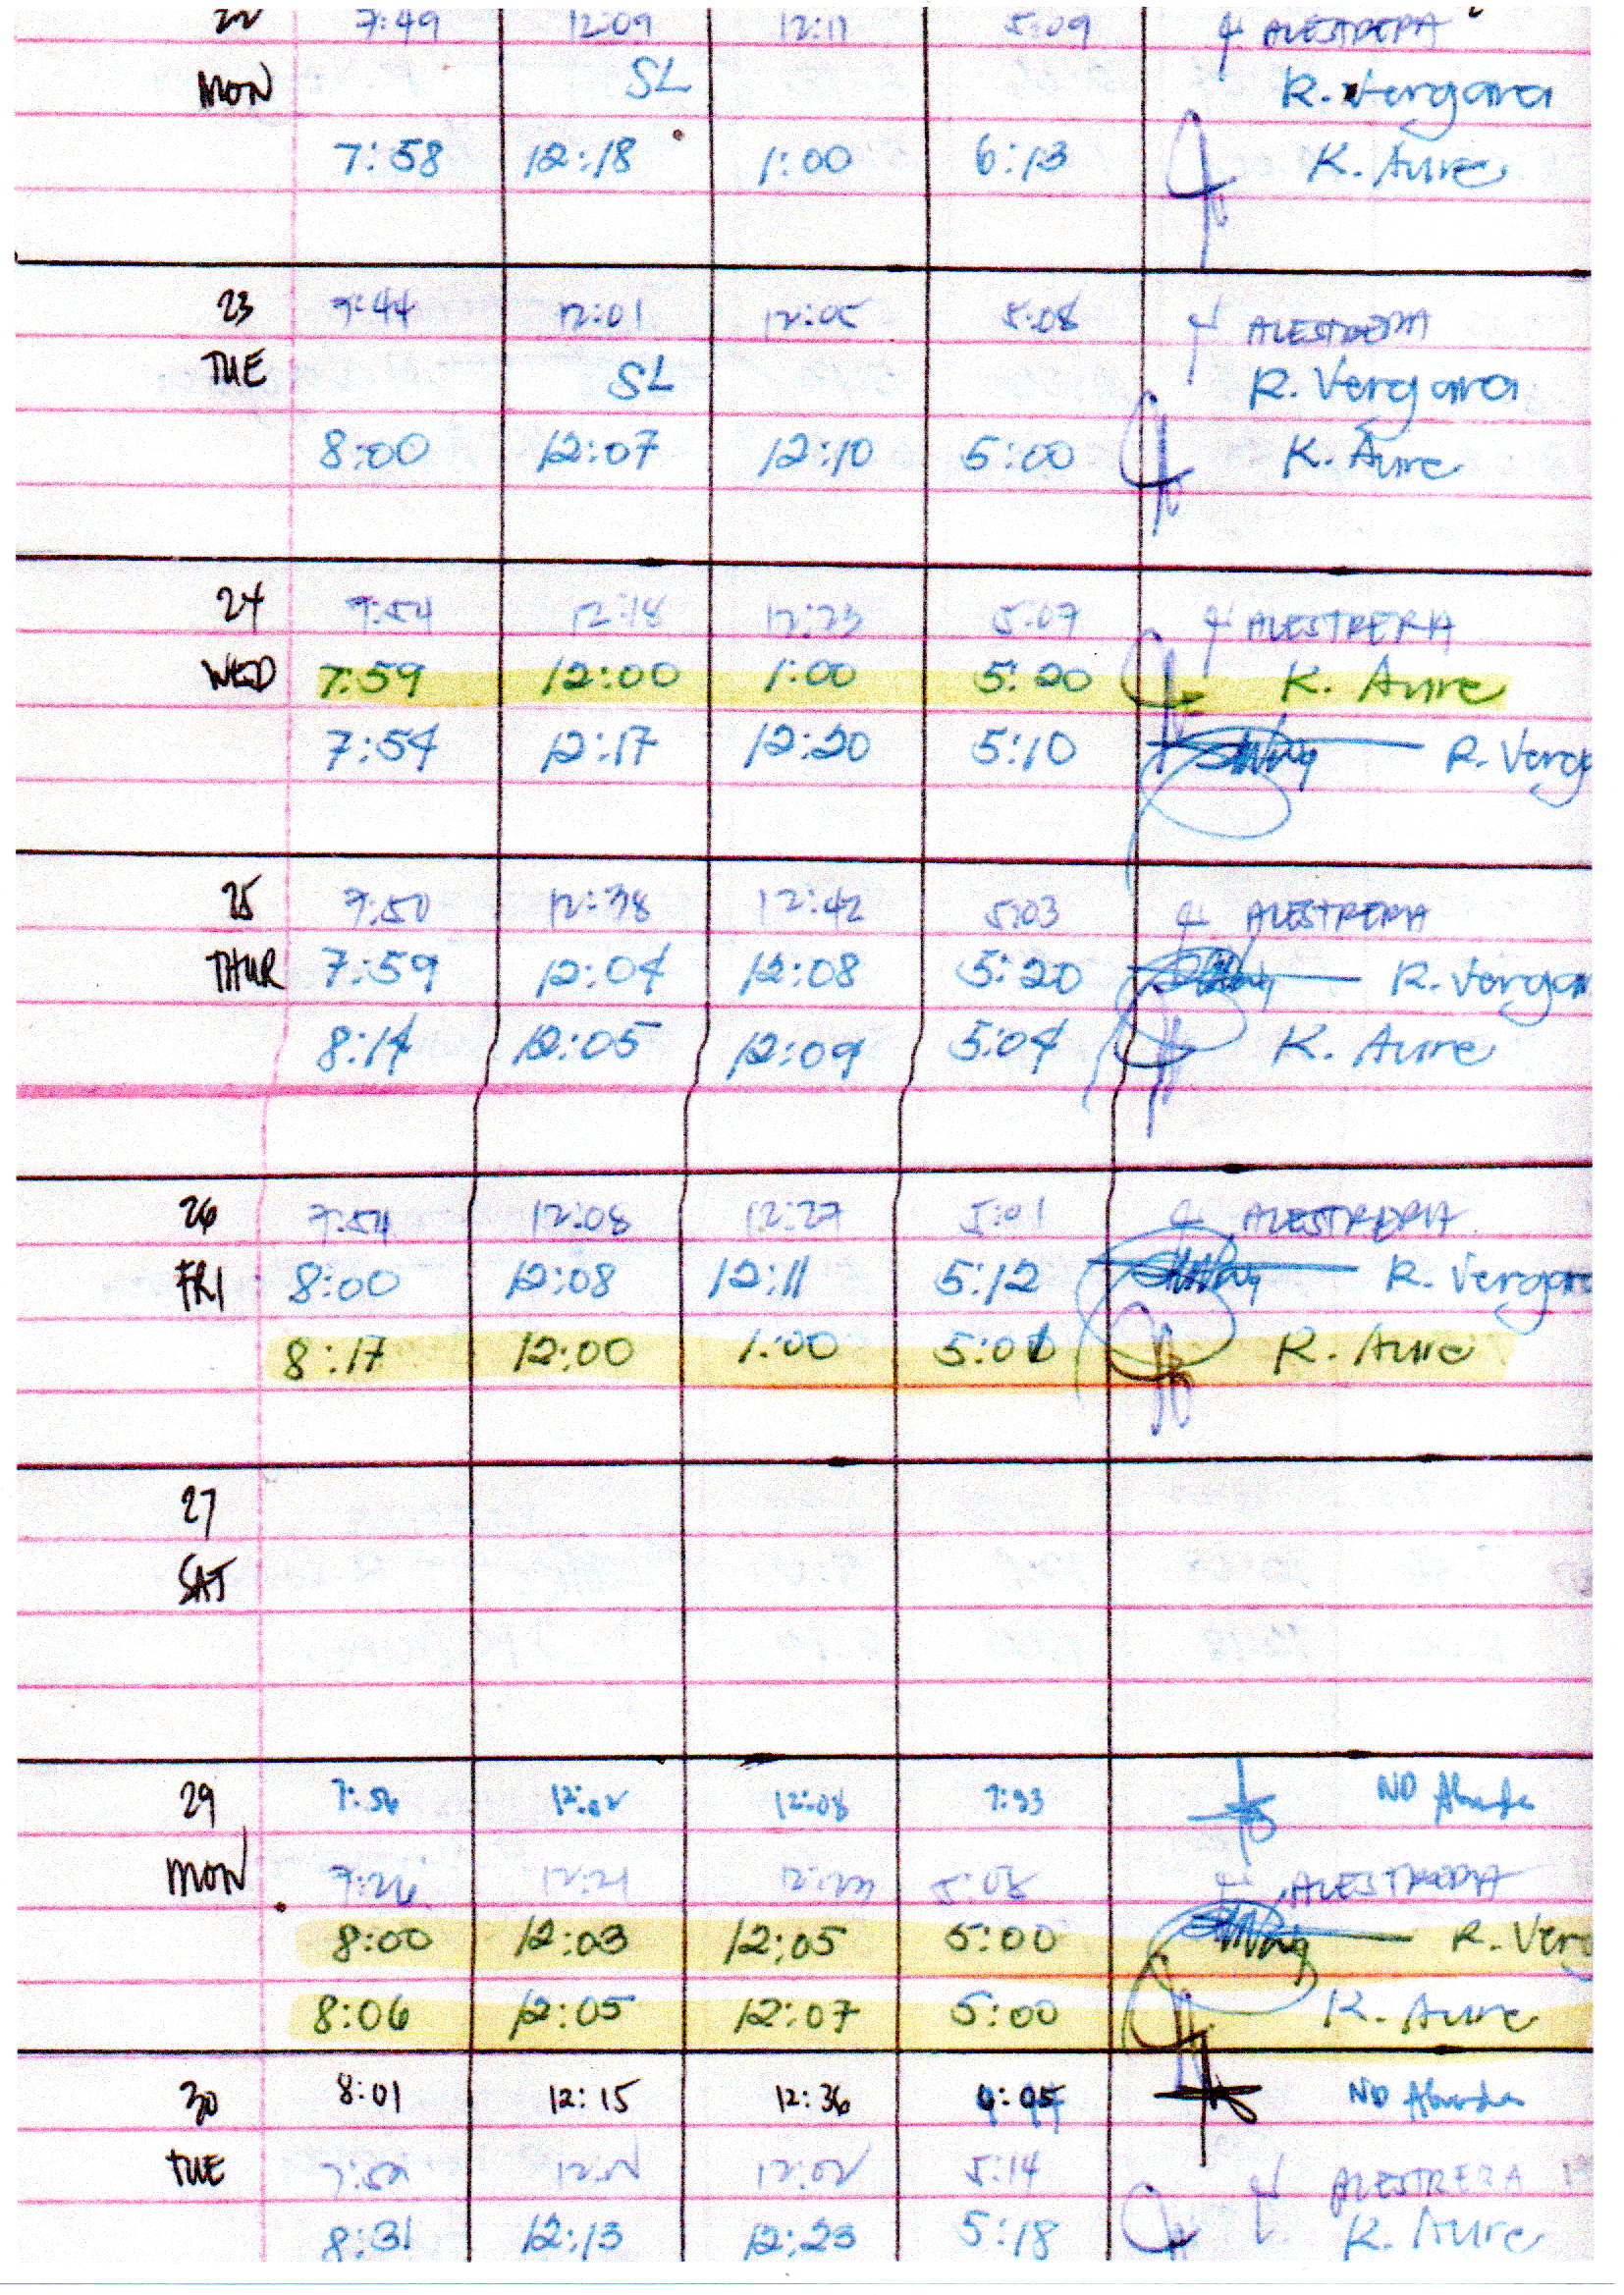 22 7:49 12:09 12:11 5:09 ALESTRERA
MON SL R. Vergara
7:58 12:18 1:00 6:13 K. Aure
23 7:44 12:01 12:05 5:08 ALESTRERA
TUE SL R. Vergara
8:00 12:07 12:10 5:00 K. Aure
24 7:54 12:18 12:23 5:07 ALESTRERA
WED 7:59 12:00 1:00 5:20 K. Aure
7:54 12:17 12:20 5:10 R. Verga
25 7:50 12:38 12:42 5:03 ALESTRERA
THUR 7:59 12:04 12:08 5:20 R. Vergara
8:14 12:05 12:09 5:04 K. Aure
26 7:54 12:08 12:27 5:01 ALESTRERA
FRI 8:00 12:08 12:11 5:12 R. Vergara
8:17 12:00 1:00 5:01 K. Aure
27
SAT
29 7:56 12:02 12:08 7:33 ND
MON 7:26 12:21 12:23 5:08 ALESTRERA
8:00 12:03 12:05 5:00 R. Verg
8:06 12:05 12:07 5:00 K. Aure
30 8:01 12:15 12:36 ND
TUE 12:02 5:14 ALESTRERA
8:31 12:13 12:23 5:18 K. Aure